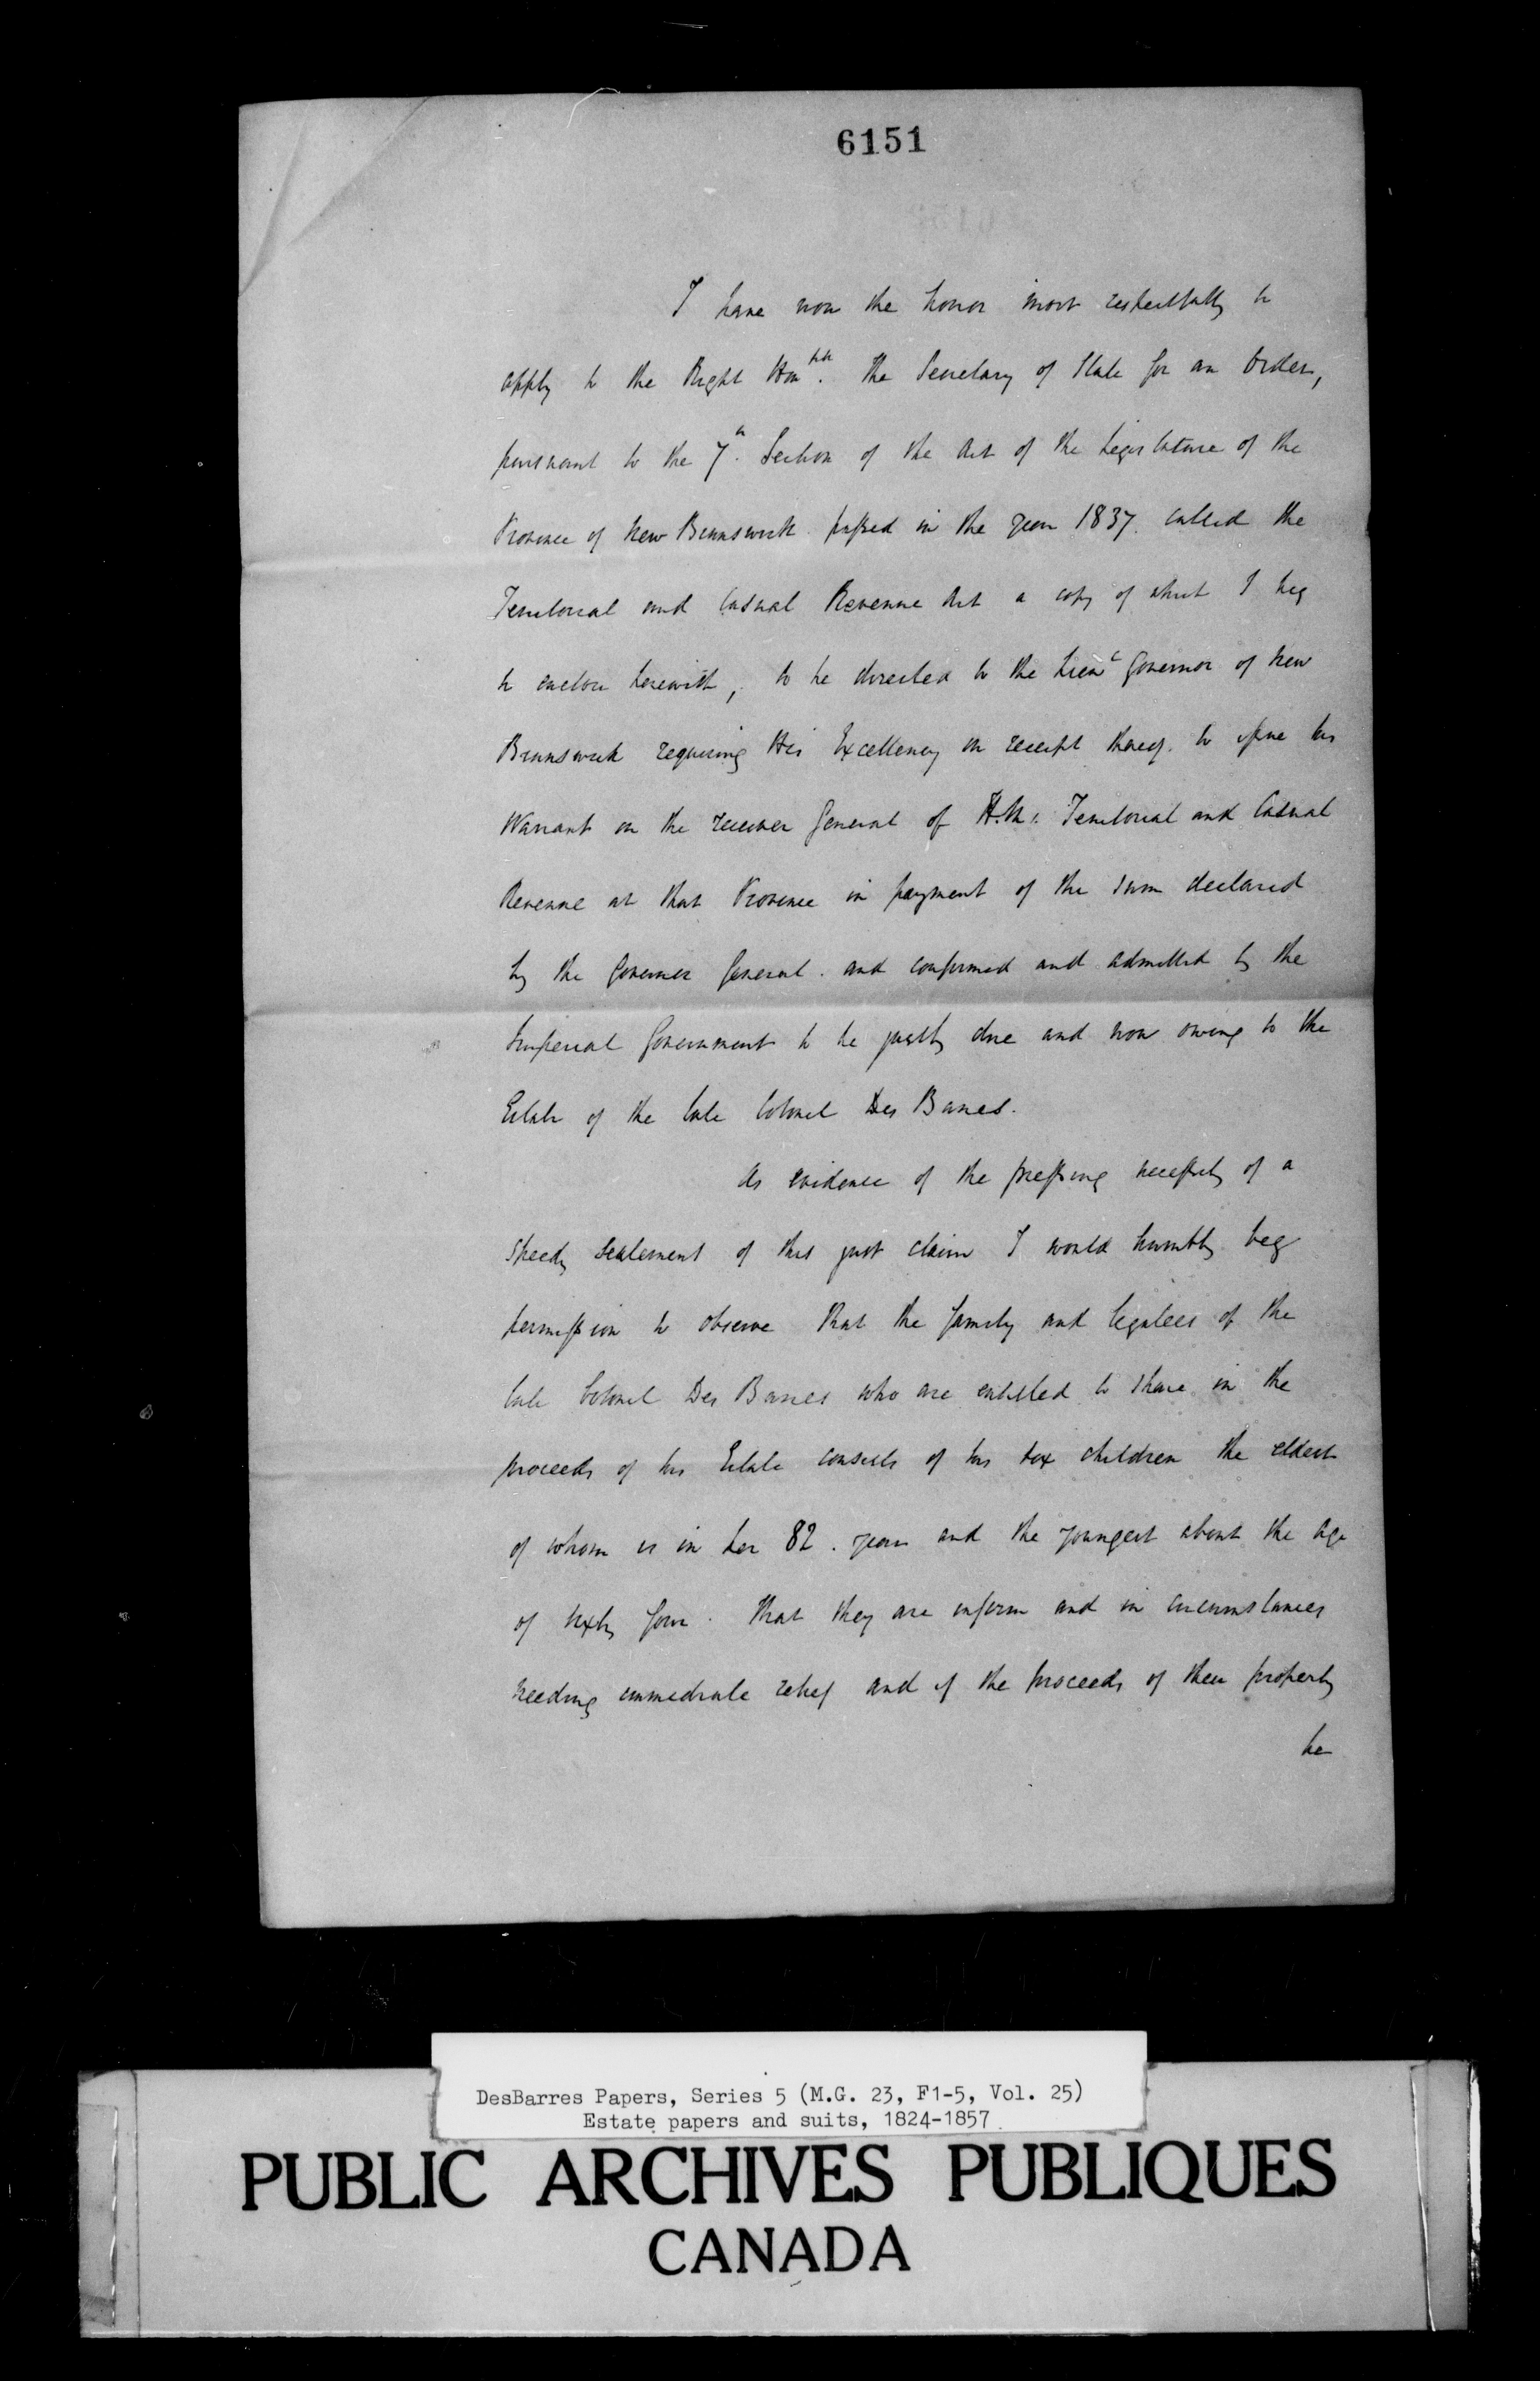 6151
I have now the honor most respectfully to
apply to the Right Hon^ble. the Secretary of State for an Order,
pursuant to the 7^h. Section of the Act of the Legislature of the
Province of New Brunswick passed in the year 1837. called the
Territorial and Casual Revenue Act a copy of which I beg
to enclose herewith, to be directed to the Lieu^t Governor of New
Brunswick requiring His Excellency on receipt thereof. to issue his
Warrant on the receiver General of H.M's. Territorial and Casual
Revenue at that Province in payment of the sum declared
by the Governor General. and confirmed and admitted by the
Imperial Government to be justly due and now owing to the
Estate of the late Colonel Des Barres.
As evidence of the pressing necessity of a
speedy settlement of this just claim I would humbly beg
permission to observe that the family and legatees of the
late Colonel Des Barres who are entitled to share in the
proceeds of his Estate consists of his children the eldest
of whom is in her 82. year and the youngest about the age
of sixty four. That they are infirm and in circumstances
needing immediate relief and if the proceeds of their property
be
DesBarres Papers, Series 5 (M.G. 23, F1-5, Vol. 25)
Estate papers and suits, 1824-1857
PUBLIC ARCHIVES PUBLIQUES
CANADA